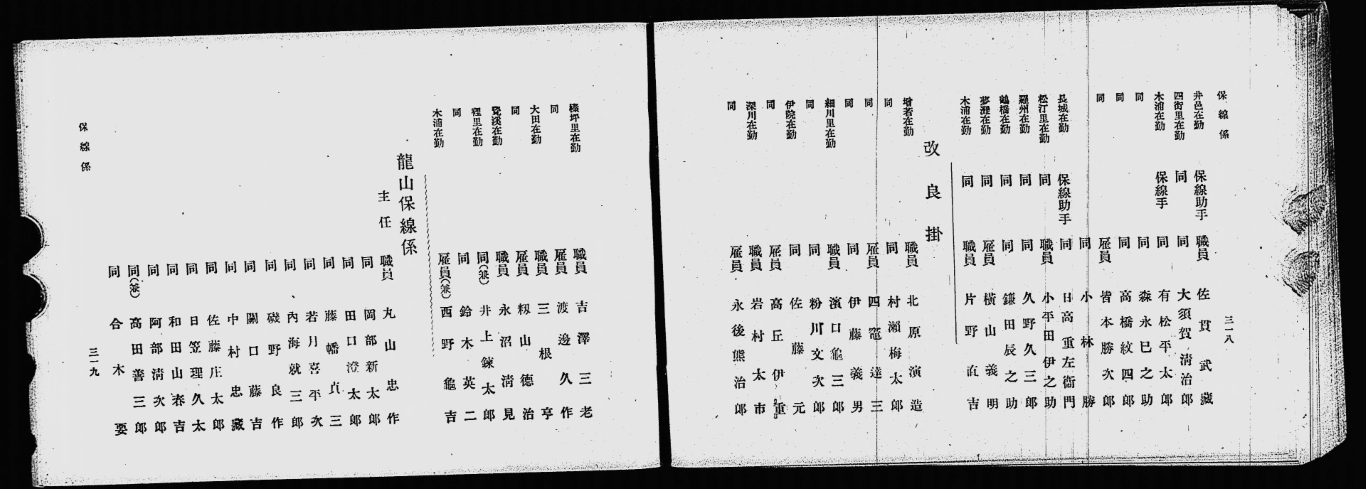 保線係
三一八
井邑在勤 保線助手 職員 佐貫武藏
四街里在勤 同 同 大須賀清治郎
木浦在勤 保線手 同 有松平太郎
同 同 森永巳之助
同 同 高橋紋四郎
同 雇員 皆本勝次郎
同 小林勝
長城在勤 保線助手 同 日高重左衞門
松汀里在勤 同 職員 小平田伊之助
羅州在勤 同 同 久野久三郎
鶴橋在勤 同 同 鎌田辰之助
夢灘在勤 同 雇員 橫山義明
木浦在勤 同 職員 片野直吉
改良掛
在勤 職員 北原演造
同 同 村瀨梅太郎
同 雇員 四竈達三
同 同 伊藤義男
細川里在勤 職員 濱口龜三郎
同 同 粉川文次郎
伊院在勤 同 佐藤元
同 雇員 高丘伊重
深川在勤 職員 岩村太市
同 雇員 永後熊治郎
在勤 職員 吉澤三老
同 雇員 渡邊久作
大田在勤 職員 三根亨
在勤 雇員 籾山德治
在勤 職員 永沼清見
同 同(兼) 井上鍊太郎
同 鈴木英二
木浦在勤 雇員(兼) 西野龜吉
龍山保線係
主任 職員 丸山忠作
同 岡部新太郎
同 田口澄太郎
同 藤幡貞三
同 若月喜平次
同 內海就三郎
同 磯野良作
同 關口藤吉
同 中村忠藏
同 佐藤庄太郎
同 日笠理久太
同 和田山春吉
同 阿部淸次郎
同(兼) 高田善三郎
同 合木要
保線係
三一九